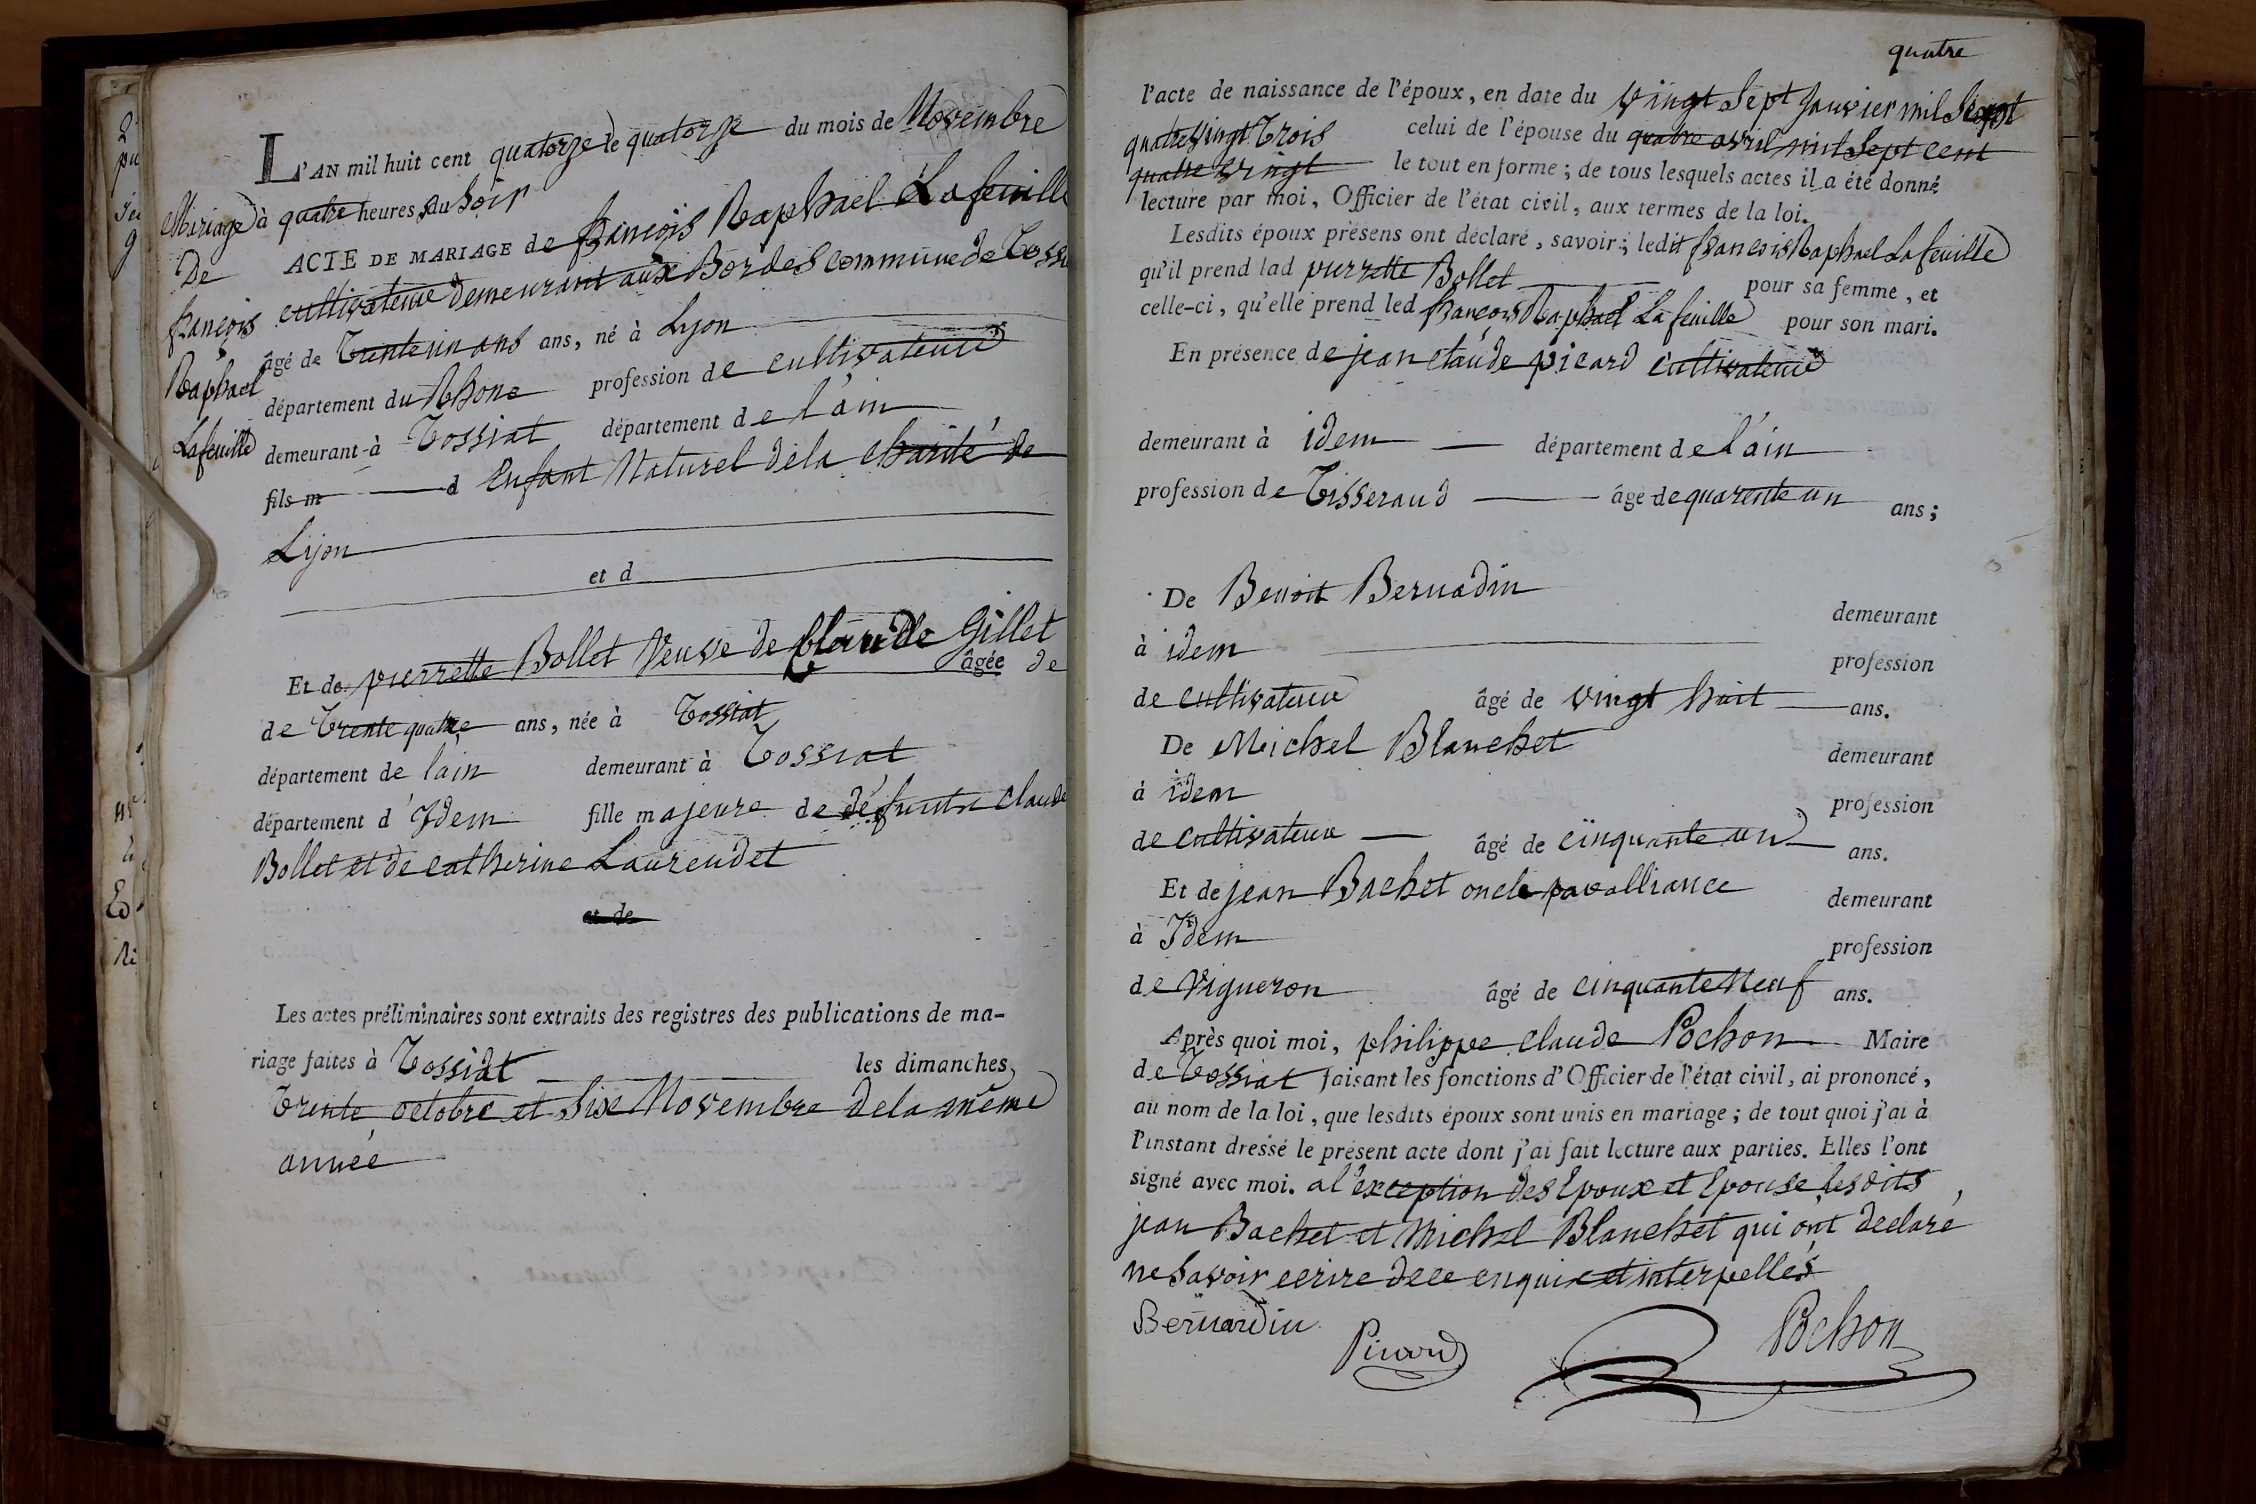 L'AN mil huit cent quatorze le quatorze du mois de Novembre
à quatre heures du Soir
Mariage
De
françois
Raphael
Lafeuille
ACTE DE MARIAGE de françois Raphael Lafeuille
cultivateur demeurant aux Bordes commune de Tossi
âgé de Trente un ans ans, né à Lyon
département du Rhone profession de cultivateur
demeurant à Tossiat département de l'ain
fils m d Enfant Naturel de la charité de
Lyon
et d
Et de pierrette Bollet Veuve de Claude Gillet
âgée de
de Trente quatre ans, née à Tossiat
département de lain demeurant à Tossiat
département d'Idem fille majeure de défunts Claude
Bollet et de catherine Laurendet
et de
Les actes préliminaires sont extraits des registres des publications de ma-
riage faites à Tossiat les dimanches
Trente octobre et Six Novembre de la même
année
quatre
l'acte de naissance de l'époux, en date du vingt Sept janvier mil Sept
quatrevingt Trois celui de l'épouse du quatre avril mil Sept cent
quatre vingt le tout en forme; de tous lesquels actes il a été donné
lecture par moi, Officier de l'état civil, aux termes de la loi.
Lesdits époux présens ont déclaré, savoir; ledit françois Raphael Lafeuille
qu'il prend lad pierrette Bollet pour sa femme, et
celle-ci, qu'elle prend led françois Raphael Lafeuille pour son mari.
En présence de jean claude picard cultivateur
demeurant à idem département de l'ain
profession de Tisserand âgé de quarente un ans;
De Benoit Bernadin demeurant
à idem profession
de cultivateur âgé de vingt huit ans.
De Michel Blanchet demeurant
à idem profession
de cultivateur âgé de cinquante un ans.
Et de jean Bachet oncle par alliance demeurant
à Idem profession
de Vigneron âgé de cinquante Neuf ans.
Après quoi moi, philippe Claude Pochon Maire
de Tossiat faisant les fonctions d'Officier de l'état civil, ai prononcé,
au nom de la loi, que lesdits époux sont unis en mariage; de tout quoi j'ai à
l'instant dressé le présent acte dont j'ai fait lecture aux parties. Elles l'ont
signé avec moi. a l'exception des Epoux et Epouse lesdits
jean Bachet et Michel Blanchet qui ont declaré
ne Savoir ecrire de ce enquix et interpellés
Bernardin
Picard
Pochon